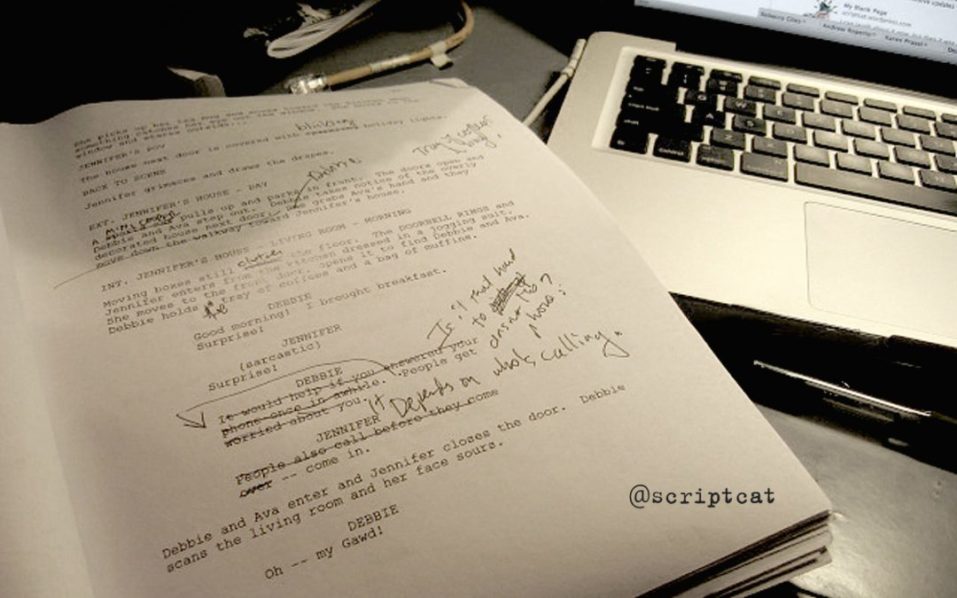 My Blank Page
scriptcat.wordpress.com
Rebecca Coles
Andrew Rogerio
Karen Prasel
She picks up her
something catches her eye out the
window and stares outside...
JENNIFER'S POV
blinking
The house next door is covered with holiday lights.
BACK TO SCENE
Tray of coffees
Jennifer grimaces and draws the drapes.
Debbie
EXT. JENNIFER'S HOUSE - DAY
A minicooper pulls up and parks in front. The doors open and
Debbie and Ava step out. Debbie takes notice of the overly
decorated house next door. She grabs Ava's hand and they
move down the walkway toward Jennifer's house.
INT. JENNIFER'S HOUSE - LIVING ROOM - MORNING
Moving boxes still clutter the floor. The DOORBELL RINGS and
Jennifer enters from the kitchen dressed in a jogging suit.
She moves to the front door. Opens it to find Debbie and Ava.
Debbie holds the tray of coffees and a bag of muffins.
DEBBIE
Good morning! I brought breakfast.
Surprise!
JENNIFER
(sarcastic)
Surprise!
Is it that hard
to
answer
phone?
DEBBIE
It would help if you answered your
phone once in awhile. People get
worried about you.
It Depends on who's calling.
JENNIFER
People also call before they come
over -- come in.
Debbie and Ava enter and Jennifer closes the door. Debbie
scans the living room and her face sours.
DEBBIE
Oh -- my Gawd!
@scriptcat